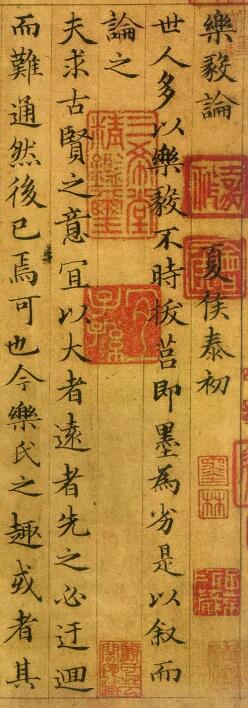 樂毅論 夏侯泰初
世人多以樂毅不時拔莒即墨為劣是以叙而
論之
夫求古賢之意宜以大者遠者先之必迂迴
而難通然後已焉可也今樂氏之趣或者其
三希堂精鑑璽
宜子孫
墨林